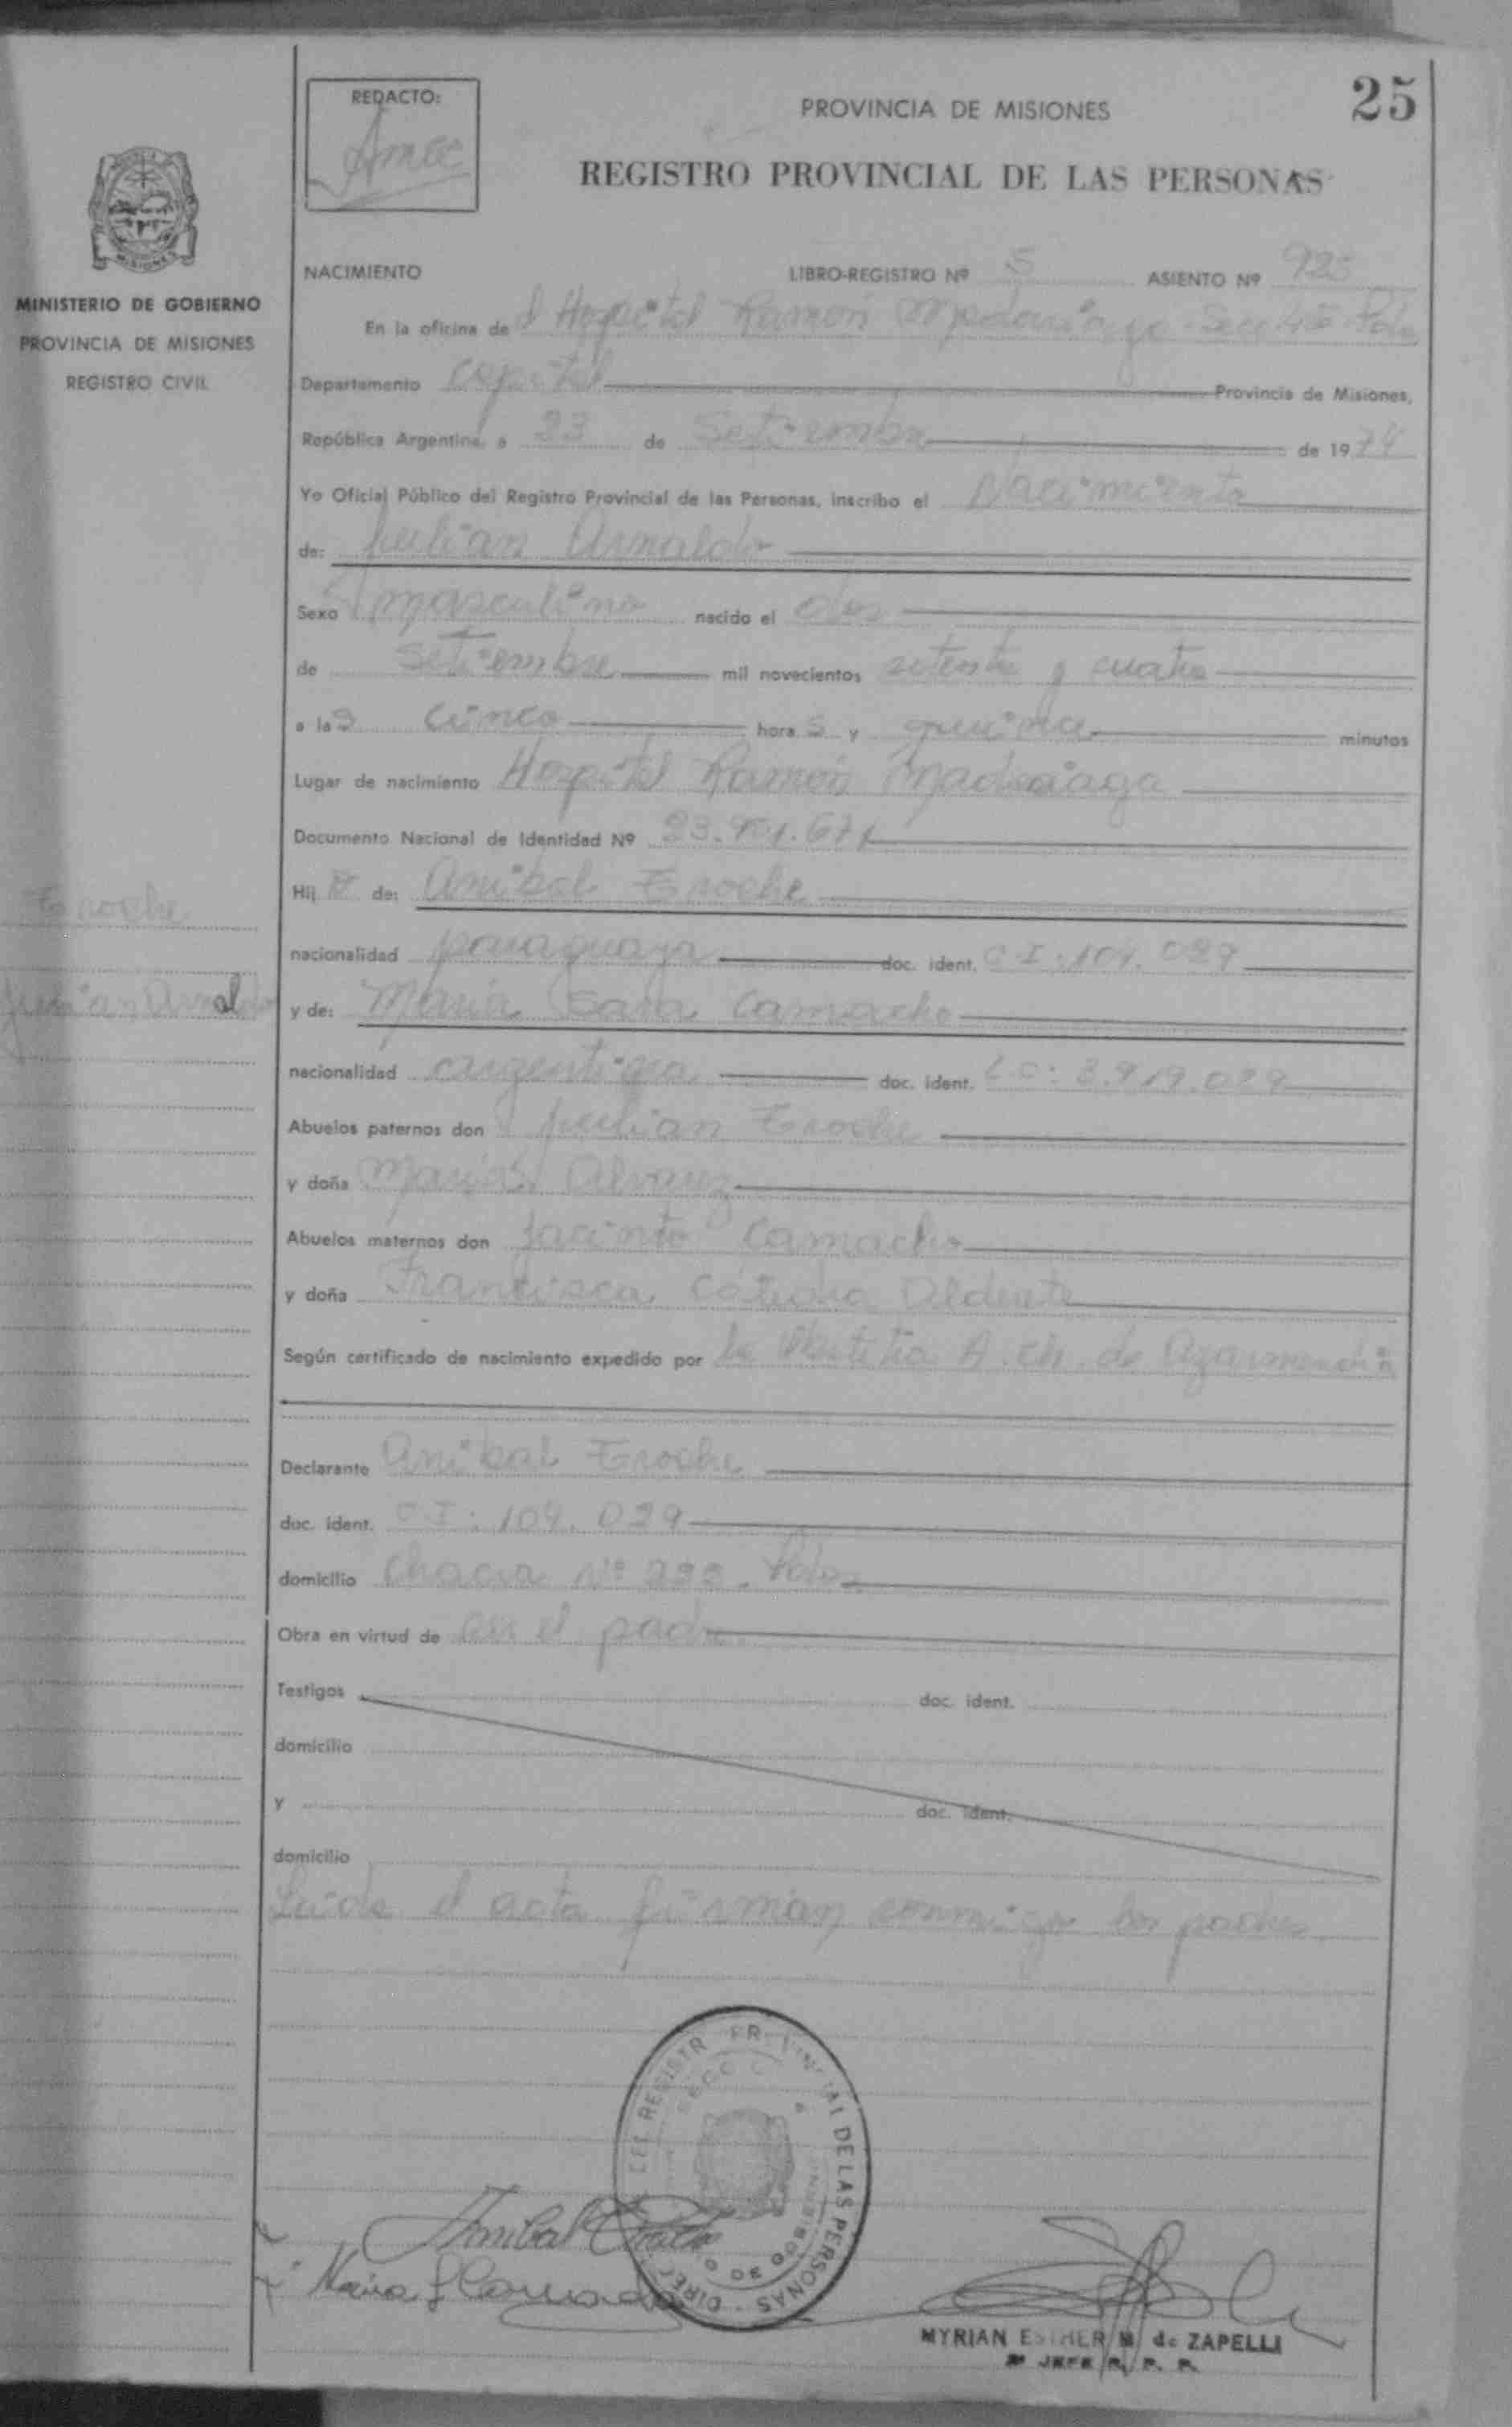 25
REDACTO:
PROVINCIA DE MISIONES
REGISTRO PROVINCIAL DE LAS PERSONAS
MISIONES
MINISTERIO DE GOBIERNO
PROVINCIA DE MISIONES
REGISTRO CIVIL
NACIMIENTO LIBRO-REGISTRO Nº 5 ASIENTO Nº
En la oficina de el Hospital Ramón
Departamento Capital Provincia de Misiones,
República Argentina, a 23 de Setiembre de 1974
Yo Oficial Público del Registro Provincial de las Personas, inscribo el Nacimiento
de: Julian Arnaldo
Sexo masculino nacido el dos
de Setiembre mil novecientos setenta y cuatro
a las cinco horas y quince minutos
Lugar de nacimiento Hospital Ramón Madariaga
Documento Nacional de Identidad Nº
Hijo de: Anibal Eroche
nacionalidad paraguaya doc. ident. C.I. 104.029
y de: Maria Sara Camacho
nacionalidad argentina doc. ident. L.C: 3.919.029
Abuelos paternos don Julian Eroche
y doña Maria Alvarez
Abuelos maternos don Jacinto Camacho
y doña Francisca Alderete
Según certificado de nacimiento expedido por la A. Ch. de
Declarante Anibal Eroche
doc. ident. C.I: 104.029
domicilio Chacra Nº
Obra en virtud de ser el padre
Testigos doc. ident.
domicilio
y doc. ident.
domicilio
Leida el acta firman conmigo los padres
Eroche
Julian Arnaldo
Anibal
Maria S Camacho
MYRIAN ESTHER M. de ZAPELLI
JEFE R. P. P.